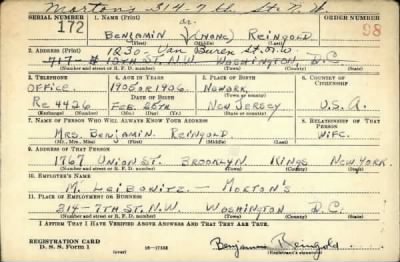 Morton's 314-7th St. N.W.
SERIAL NUMBER 1. NAME (Print) or ORDER NUMBER
172 BENJAMIN (NONE) REINGOLD 98
(First) (Middle) (Last)
2. ADDRESS (Print) 1230 - Van Buren St. N.W.
717 - # 18TH ST. N.W. WASHINGTON, D.C.
(Number and street or R. F. D. number) (Town) (County) (State)
3. TELEPHONE 4. AGE IN YEARS 5. PLACE OF BIRTH 6. COUNTRY OF CITIZENSHIP
OFFICE 1905 or 1906 NEWARK
DATE OF BIRTH (Town or county)
RE 4426 FEB. 28TH NEW JERSEY U.S.A.
(Exchange) (Number) (Mo.) (Day) (Yr.) (State or country)
7. NAME OF PERSON WHO WILL ALWAYS KNOW YOUR ADDRESS 8. RELATIONSHIP OF THAT PERSON
MRS. BENJAMIN REINGOLD WIFE.
(Mr., Mrs., Miss) (First) (Middle) (Last)
9. ADDRESS OF THAT PERSON
1767 UNION ST. BROOKLYN KINGS NEW YORK.
(Number and street or R. F. D. number) (Town) (County) (State)
10. EMPLOYER'S NAME
M. LEIBOWITZ - MORTON'S
11. PLACE OF EMPLOYMENT OR BUSINESS
314 - 7TH ST. N.W. WASHINGTON D.C.
(Number and street or R. F. D. number) (Town) (County) (State)
I AFFIRM THAT I HAVE VERIFIED ABOVE ANSWERS AND THAT THEY ARE TRUE.
REGISTRATION CARD
D. S. S. Form 1 (over) 16-17105 Benjamin Reingold
(Registrant's signature)